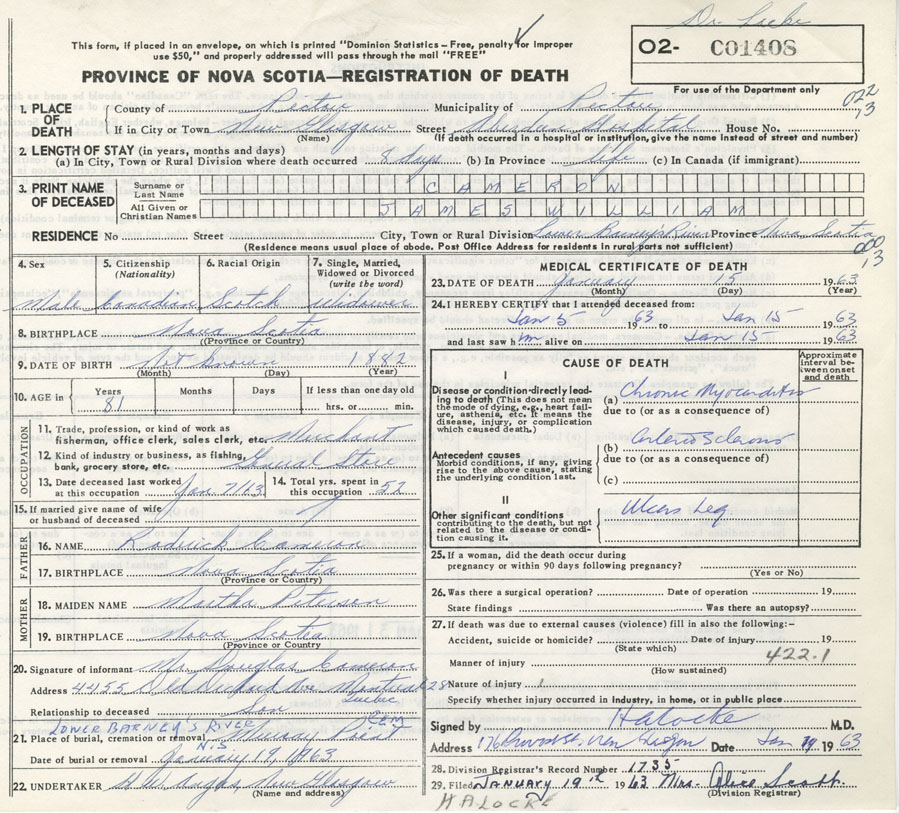 Dr. Locke
This form, if placed in an envelope, on which is printed "Dominion Statistics – Free, penalty for improper
use $50," and properly addressed will pass through the mail "FREE"
O2- C01408
PROVINCE OF NOVA SCOTIA—REGISTRATION OF DEATH
For use of the Department only
022
13
1. PLACE OF DEATH
County of Pictou Municipality of Pictou
If in City or Town New Glasgow Street Aberdeen Hospital House No.
(Name) (If death occurred in a hospital or institution, give the name instead of street and number)
2. LENGTH OF STAY (in years, months and days)
(a) In City, Town or Rural Division where death occurred 8 days (b) In Province life (c) In Canada (if immigrant)
3. PRINT NAME OF DECEASED
Surname or Last Name CAMERON
All Given or Christian Names JAMES WILLIAM
RESIDENCE No Street City, Town or Rural Division Lower Barneys River Province Nova Scotia
(Residence means usual place of abode. Post Office Address for residents in rural parts not sufficient)
000
13
4. Sex 5. Citizenship (Nationality) 6. Racial Origin 7. Single, Married, Widowed or Divorced (write the word)
Male Canadian Scotch Widower
8. BIRTHPLACE Nova Scotia
(Province or Country)
9. DATE OF BIRTH Not Known 1882
(Month) (Day) (Year)
10. AGE in Years Months Days If less than one day old
81 hrs. or min.
OCCUPATION
11. Trade, profession, or kind of work as
fisherman, office clerk, sales clerk, etc. Merchant
12. Kind of industry or business, as fishing,
bank, grocery store, etc. General Store
13. Date deceased last worked
at this occupation Jan 7/63
14. Total yrs. spent in
this occupation 57
15. If married give name of wife
or husband of deceased
FATHER
16. NAME Rodrick Cameron
17. BIRTHPLACE Nova Scotia
(Province or Country)
MOTHER
18. MAIDEN NAME Martha Peterson
19. BIRTHPLACE Nova Scotia
(Province or Country)
20. Signature of informant Mr. Douglas Cameron
Address 4455 Ave Montreal 28
Quebec
Relationship to deceased Son
LOWER BARNEY'S RIVER CEM
21. Place of burial, cremation or removal Murray Point
N.S
Date of burial or removal January 19, 1963
22. UNDERTAKER New Glasgow
(Name and address)
MEDICAL CERTIFICATE OF DEATH
23. DATE OF DEATH January 15 1963
(Month) (Day) (Year)
24. I HEREBY CERTIFY that I attended deceased from:
Jan 5 1963 to Jan 15 1963
and last saw him alive on Jan 15 1963
CAUSE OF DEATH
Approximate interval between onset and death
I
Disease or condition directly leading
to death (This does not mean
the mode of dying, e.g., heart failure,
asthenia, etc. It means the
disease, injury, or complication
which caused death.)
(a) Chronic Myocarditis
due to (or as a consequence of)
(b) Arteriosclerosis
due to (or as a consequence of)
(c)
Antecedent causes
Morbid conditions, if any, giving
rise to the above cause, stating
the underlying condition last.
II
Other significant conditions
contributing to the death, but not
related to the disease or condition
causing it.
Ulcers Leg
25. If a woman, did the death occur during
pregnancy or within 90 days following pregnancy?
(Yes or No)
26. Was there a surgical operation? Date of operation 19
State findings Was there an autopsy?
27. If death was due to external causes (violence) fill in also the following:–
Accident, suicide or homicide? Date of injury 19
(State which)
422.1
Manner of injury
(How sustained)
Nature of injury
Specify whether injury occurred in industry, in home, or in public place
Signed by HALocke M.D.
Address 176 Provost St. New Glasgow Date Jan 19 1963
28. Division Registrar's Record Number 1735
29. Filed JANUARY 19th 1963 Mrs. Alice Scott
(Division Registrar)
HALOCKE